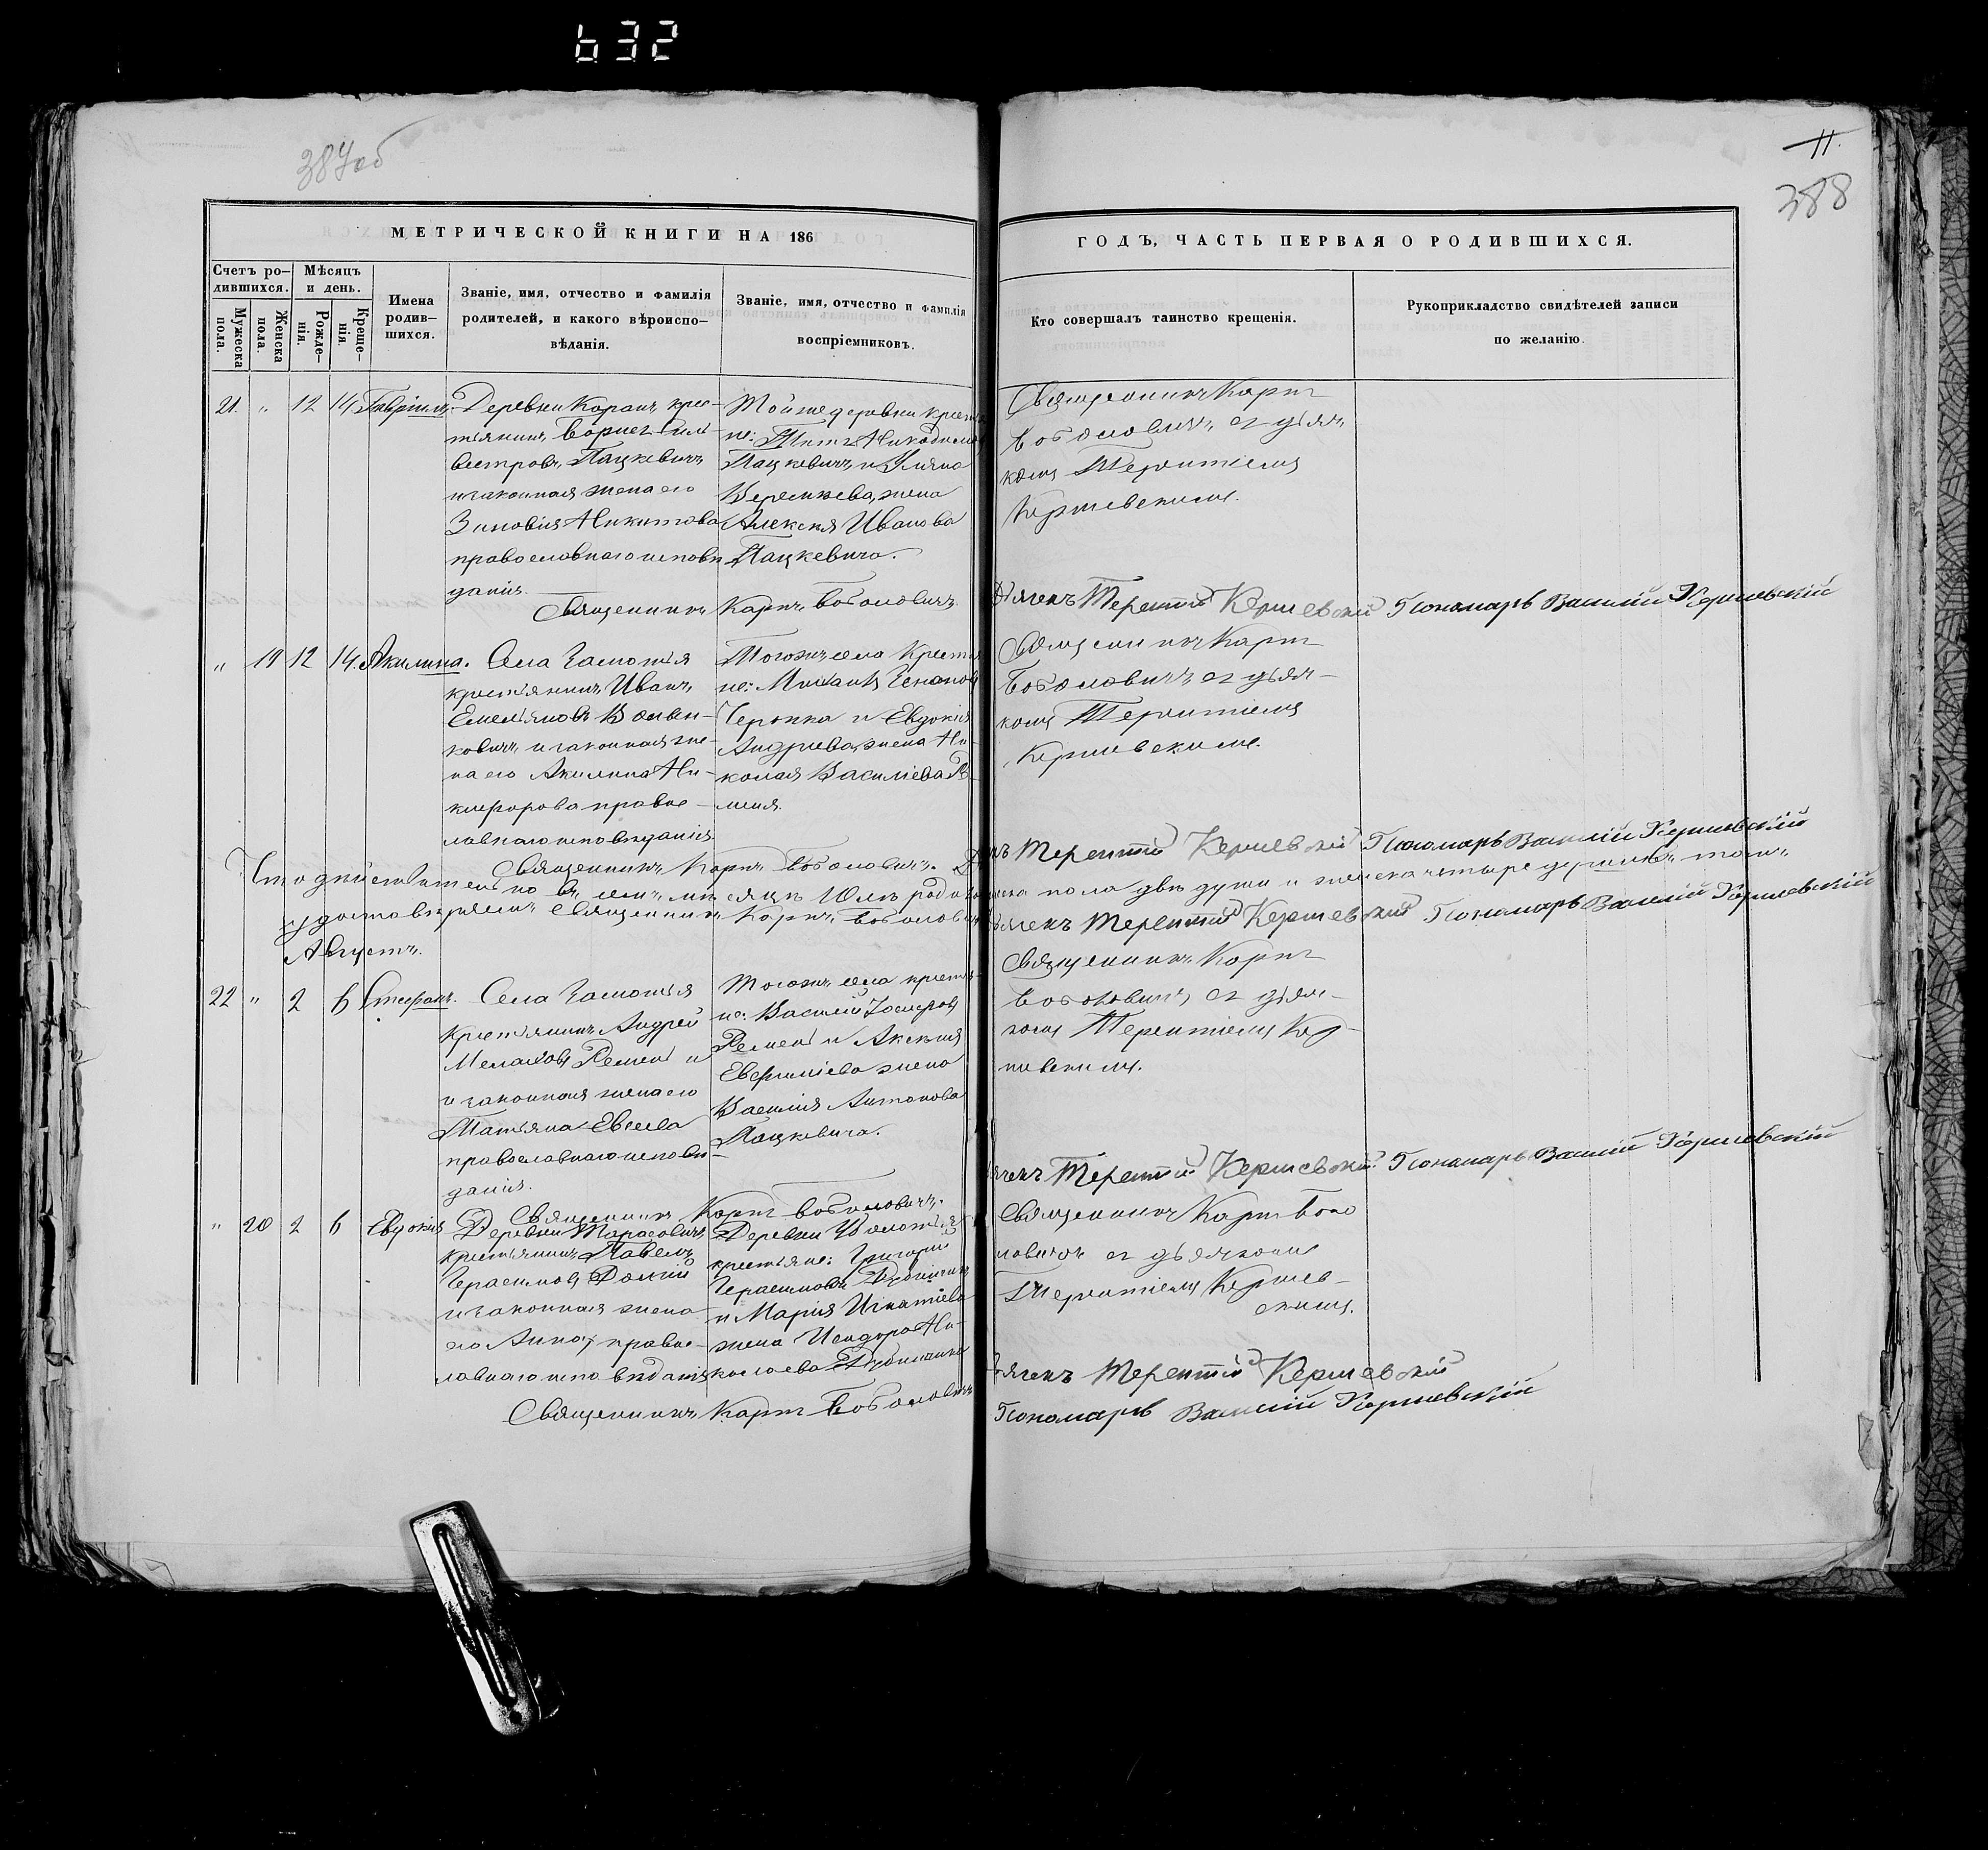 632
387об
11.
388
МЕТРИЧЕСКОЙ КНИГИ НА 186
ГОДЪ, ЧАСТЬ ПЕРВАЯ О РОДИВШИХСЯ.
Счетъ ро-
дившихся.
Мужеска
пола.
Женска
пола.
Мѣсяцъ
и день.
Рожде-
нія.
Креще-
нія.
Имена
родив-
шихся.
Званіе, имя, отчество и фамилія
родителей, и какого вѣроиспо-
вѣданія.
Званіе, имя, отчество и фамилія
воспріемниковъ.
Кто совершалъ таинство крещенія.
Рукоприкладство свидѣтелей записи
по желанію.
21. " 12 14 Гавріилъ.
Деревни Коранъ крес-
тьянинъ Борисъ Силь-
вестровъ Пацкевичъ
и законная жена его
Зиновія Никитова
православнаго исповѣ
данія.
Той же деревни крестья
не: Титъ Никодимовъ
Пацкевичъ и Уляна
жена
Алексея Иванова
Пацкевича.
Священникъ Карпъ
Боболовичъ съ дьяч-
комъ Терентіемъ
Кершевскимъ.
Священникъ Карпъ Боболовичъ
Дьячекъ Терентій Кершевскій Пономарь Василій Кершевскій
" 19 12 14. Акилина.
Села
крестьянинъ Иванъ
Емельяновъ
и законная же-
на его Акилина Ни-
кифорова правос-
лавнаго исповѣданія.
Тогожъ села Крестья
не:
и Евдокія
Андреева жена Ни-
колая Василіева
Священникъ Карпъ
Боболовичъ съ дьяч-
комъ Терентіемъ
Кершевскимъ.
Священникъ Карпъ Боболовичъ.
Терентій Кершевскій Пономарь Василій Кершевскій
Что дѣйствительно въ семъ мѣсяцѣ Юлѣ пола двѣ души и женска четыре
удостовѣряемъ Священникъ Карпъ Боболовичъ Дьячекъ Терентій Кершевскій Пономарь Василій Кершевскій
Августъ.
22 " 2 6 Стефанъ.
Села
Крестьянинъ Андрей
Ремень и
и законная жена его
Татьяна Евсеева
православнаго исповѣ-
данія.
Тогожъ села крестья-
не: Василій Іосифовъ
Ремень и Аксенія
жена
Василія Антонова
Пацкевича.
Священникъ Карпъ
Боболовичъ съ дьяч-
комъ Терентіемъ Кер-
шевскимъ.
Священникъ Карпъ Боболовичъ.
Терентій Кершевскій Пономарь Василій Кершевскій
" 20 2 6 Евдокія
Деревни Тарасовичъ
Крестьянинъ Павелъ
Герасимовъ
и законная жена
его Анна, правос-
лавнаго исповѣданія
Деревни
крестьяне: Григорій
Герасимовъ
и Марія Игнатіева
жена Исидора Ни-
колаева
Священникъ Карпъ Бобо
ловичъ съ дьячкомъ
Терентіемъ Кершев-
скимъ.
Священникъ Карпъ Боболовичъ
Дьячекъ Терентій Кершевскій
Пономарь Василій Кершевскій